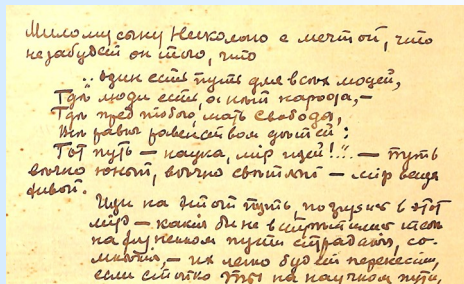 Милому сыну Николаю с мечтой, что
не забудет он того, что
„Один есть путь для всех людей,
Где люди есть, а нет народа,—
Где пред тобою, мать свобода,
Мы равны равенством детей;
Тот путь — наука, мир идей!“ — путь
вѣчно юный, вѣчно — мир
Иди на этот путь, погрузись в этот
мір — какія бы не
на жизненном пути страданья, со-
мненья, — их легко будет перенести,
если стойко ты на научном пути,